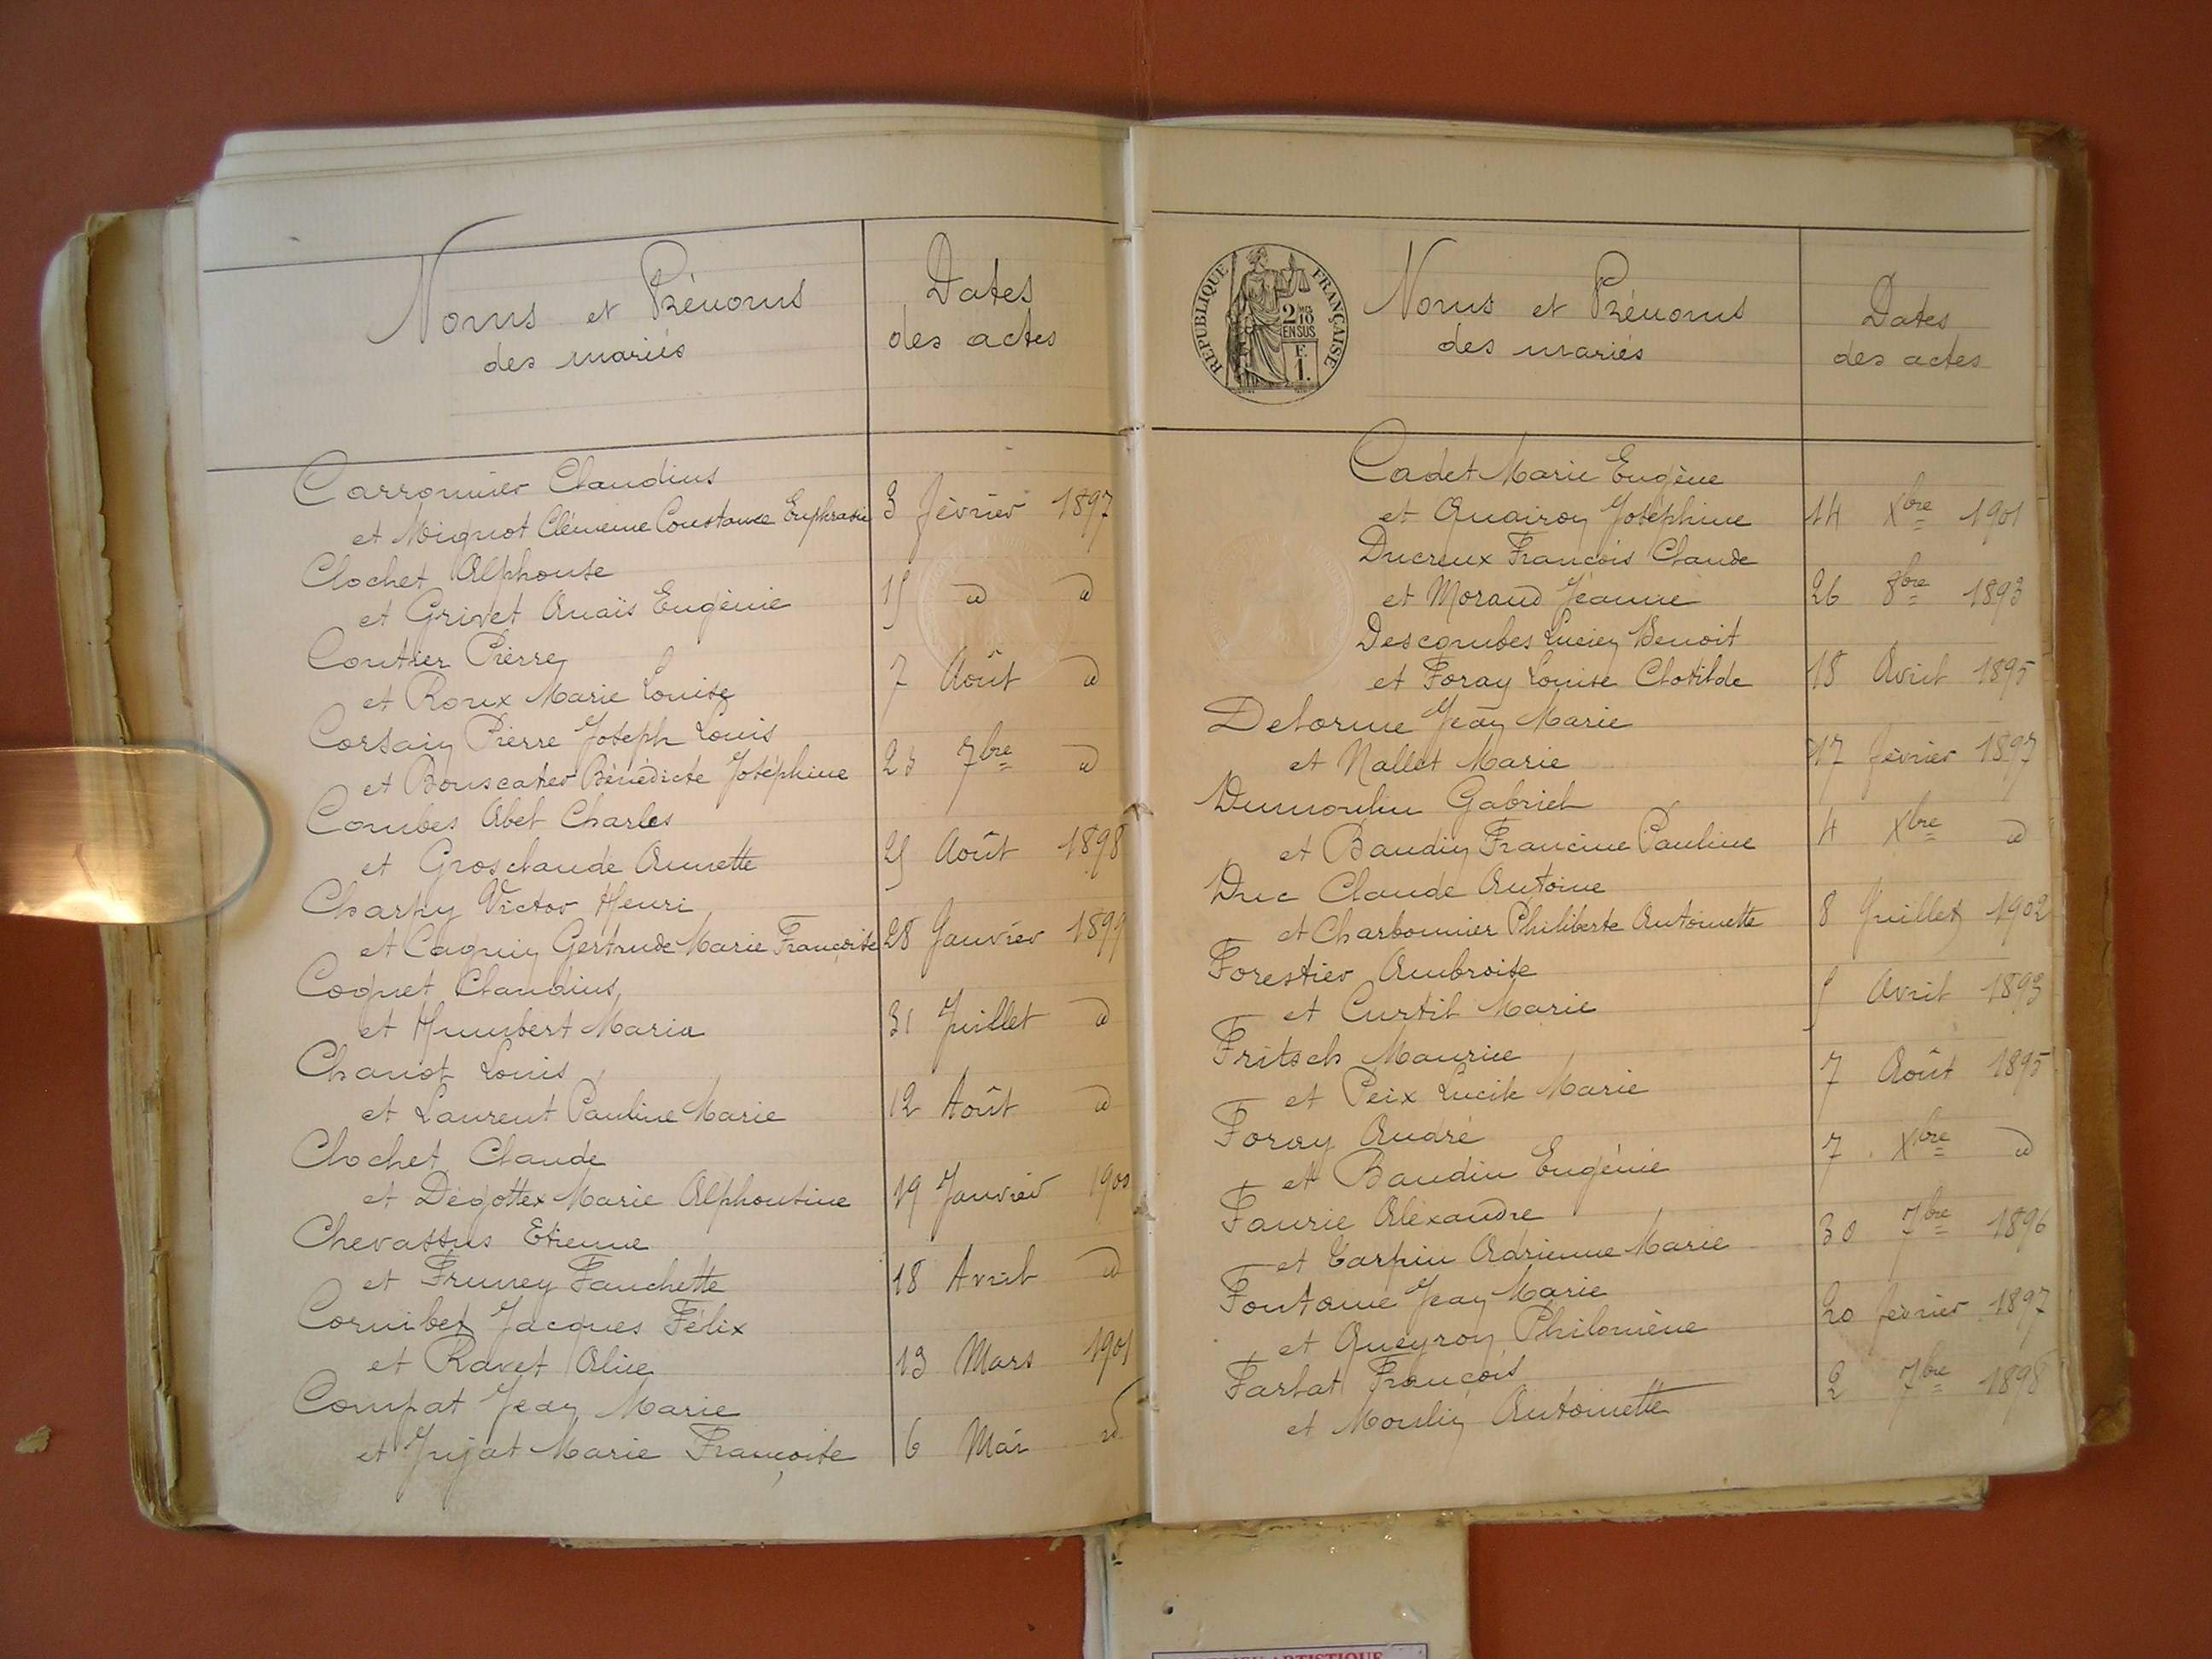 Noms et Prénoms
des mariés
Dates
des actes
Carronnier Claudius
et Mignot Clémence Constance Euphrasie 3 février 1897
Clochet Alphonse
et Grivet Anaïs Eugénie 15 d d
Contier Pierre
et Roux Marie Louise 7 Août d
Corsain Pierre Joseph Louis
et Bouscatier Bénédicte Joséphine 23 7bre d
Combes Abel Charles
et Grosclaude Annette 25 Août 1898
Charpy Victor Henri
et Caquin Gertrude Marie Françoise 28 Janvier 1899
Coquet Claudius
et Humbert Maria 31 Juillet d
Chanot Louis
et Laurent Pauline Marie 12 Août d
Clochet Claude
et Dégottex Marie Alphonsine 19 Janvier 1900
Chevassus Etienne
et Fruney Fanchette 18 Avril d
Cornibet Jacques Félix
et Ravet Alice 13 Mars 1901
Compat Jean Marie
et Jujat Marie Françoise 6 Mai d
RÉPUBLIQUE FRANÇAISE
2/10
EN SUS
F.
1.
Noms et Prénoms
des mariés
Dates
des actes
Cadet Marie Eugène
et Quairoy Joséphine 14 Xbre 1901
Ducreux François Claude
et Morand Jeanne 26 8bre 1893
Descombes Lucien Benoit
et Foray Louise Clotilde 18 Avril 1895
Delorme Jean Marie
et Nallet Marie 17 février 1897
Dumoulin Gabriel
et Baudin Francine Pauline 4 Xbre d
Duc Claude Antoine
et Charbonnier Philiberte Antoinette 8 Juillet 1902
Forestier Ambroise
et Curtil Marie 5 Avril 1893
Fritsch Maurice
et Peix Lucile Marie 7 Août 1895
Foray André
et Baudin Eugénie 7 Xbre d
Faurie Alexandre
et Carpin Adrienne Marie 30 7bre 1896
Fontaine Jean Marie
et Queyroy Philomène 20 février 1897
Farlat François
et Moulin Antoinette 2 7bre 1898